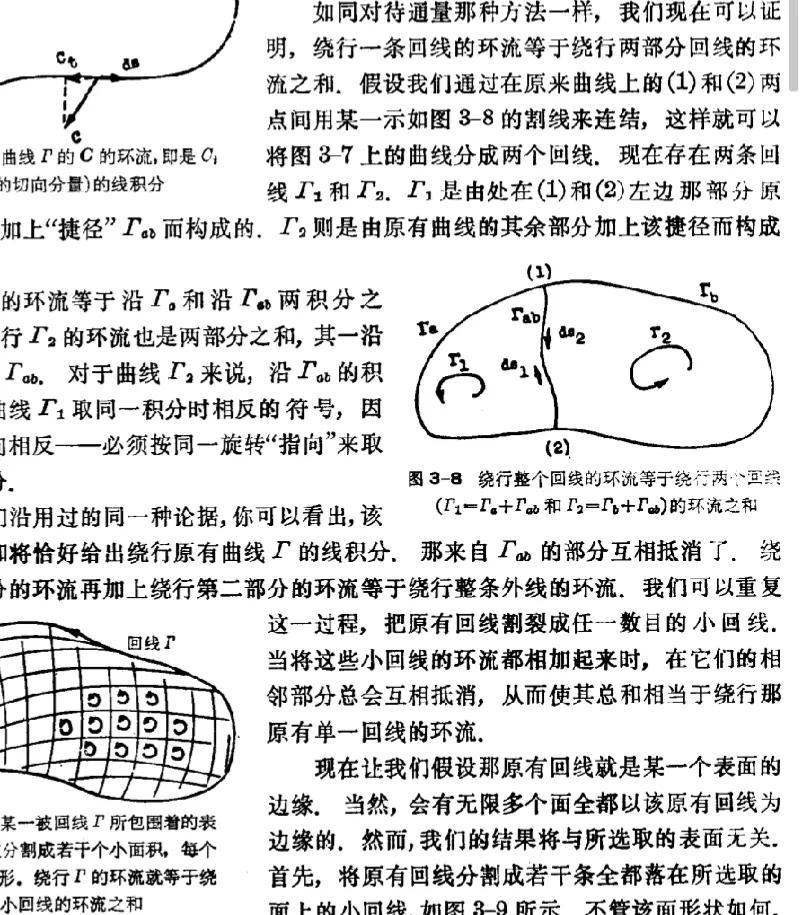 如同对待通量那种方法一样，我们现在可以证
明，绕行一条回线的环流等于绕行两部分回线的环
流之和．假设我们通过在原来曲线上的(1)和(2)两
点间用某一示如图 3-8 的割线来连结，这样就可以
将图 3-7 上的曲线分成两个回线．现在存在两条回
线 Γ₁ 和 Γ₂．Γ₁ 是由处在(1)和(2)左边那部分原
Cₜ ds
C
曲线 Γ 的 C 的环流，即是 Cₜ
的切向分量)的线积分
加上“捷径”Γab 而构成的．Γ₂ 则是由原有曲线的其余部分加上该捷径而构成
的环流等于沿 Γa 和沿 Γab 两积分之
行 Γ₂ 的环流也是两部分之和，其一沿
Γab．对于曲线 Γ₂ 来说，沿 Γab 的积
曲线 Γ₁ 取同一积分时相反的符号，因
向相反——必须按同一旋转“指向”来取
分．
(1)
Γa Γab Γb
ds₂ Γ₂
Γ₁ ds₁
(2)
图 3-8 绕行整个回线的环流等于绕行两个回线
(Γ₁=Γa+Γab 和 Γ₂=Γb+Γab)的环流之和
们沿用过的同一种论据，你可以看出，该
和将恰好给出绕行原有曲线 Γ 的线积分．那来自 Γab 的部分互相抵消了．绕
分的环流再加上绕行第二部分的环流等于绕行整条外线的环流．我们可以重复
这一过程，把原有回线割裂成任一数目的小回线．
当将这些小回线的环流都相加起来时，在它们的相
邻部分总会互相抵消，从而使其总和相当于绕行那
原有单一回线的环流．
回线 Γ
某一被回线 Γ 所包围着的表
分割成若干个小面积，每个
形．绕行 Γ 的环流就等于绕
小回线的环流之和
现在让我们假设那原有回线就是某一个表面的
边缘．当然，会有无限多个面全都以该原有回线为
边缘的．然而，我们的结果将与所选取的表面无关．
首先，将原有回线分割成若干条全都落在所选取的
面上的小回线，如图 3-9 所示．不管该面形状如何，